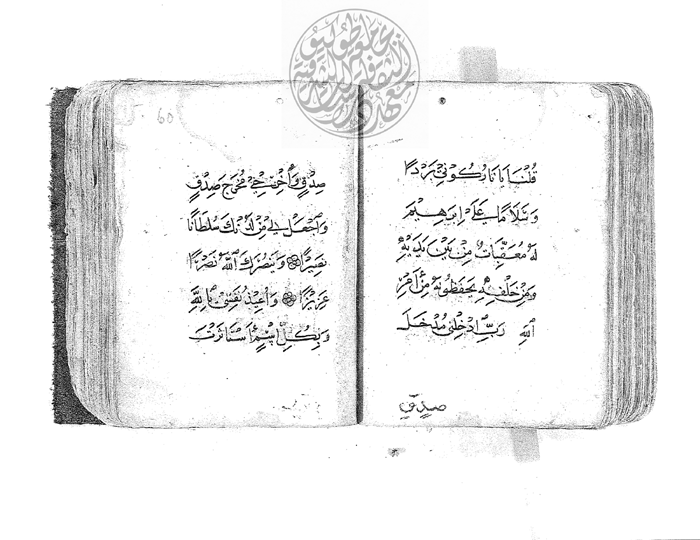 قُلْنَا يَا نَارُ كُونِي بَرْدًا
وَسَلَامًا عَلَى إِبْرَهِيمَ
لَهُ مُعَقِّبَاتٌ مِنْ بَيْنِ يَدَيْهِ
وَمِنْ خَلْفِهِ يَحْفَظُونَهُ مِنْ أَمْرِ
اللَّهِ رَبِّ ادْخِلْنِي مُدْخَلَ
صدق
60
صِدْقٍ وَأَخْرِجْنِي مُخْرَجَ صِدْقٍ
وَاجْعَلْ لِي مِنْ لَدُنْكَ سُلْطَانًا
نَصِيرًا وَيَنْصُرَكَ اللَّهُ نَصْرًا
عَزِيزًا وَأُعِيذُ نَفْسِي بِاللَّهِ
وَبِكُلِّ اسْمٍ اسْتَأْثَرْتَ